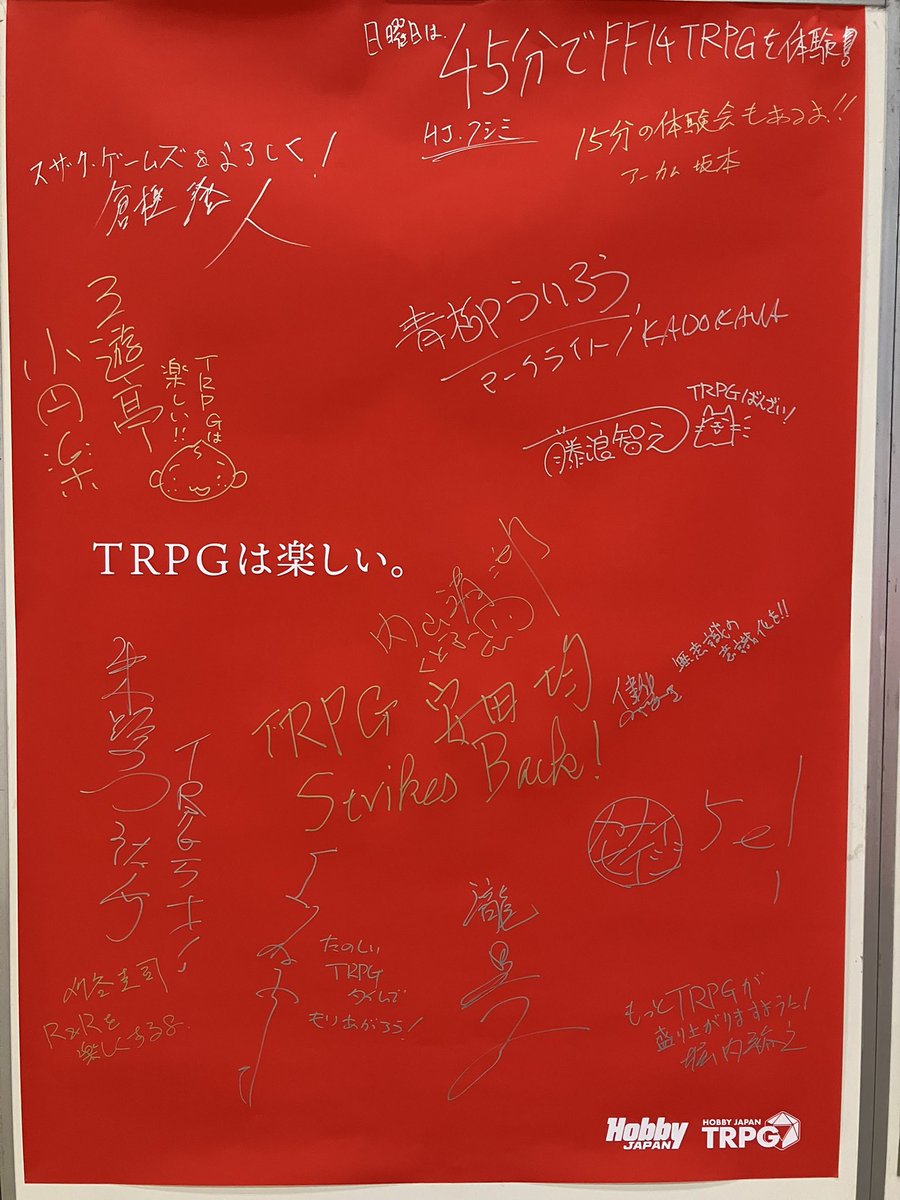 日曜日は
45分でFF14TRPGを体験!
HJ.フシミ
15分の体験会もあるよ!!
アーカム 坂本
スザク・ゲームズをよろしく!
倉樫 澄人
三遊亭
小円楽
TRPGは
楽しい!!
青柳ういろう
マークライト/KADOKAWA
藤浪智之
TRPGばんざい!
TRPGは楽しい。
内山靖二郎
TRPG 安田均
Strikes Back!
無意識の
意識化を!!
朱鷺
TRPG
刈谷圭司
R&Rを
楽しくする
たのしい
TRPG
タイムで
もりあがろう!
瀧
もっとTRPGが
盛り上がりますように!
堀内
Hobby
JAPAN
HOBBY JAPAN
TRPG